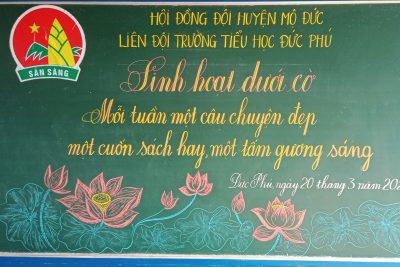 HỘI ĐỒNG ĐỘI HUYỆN MỘ ĐỨC
LIÊN ĐỘI TRƯỜNG TIỂU HỌC ĐỨC PHÚ
SẴN SÀNG
Sinh hoạt dưới cờ
Mỗi tuần một câu chuyện đẹp
một cuốn sách hay, một tấm gương sáng
Đức Phú, ngày 20 tháng 3 năm 202